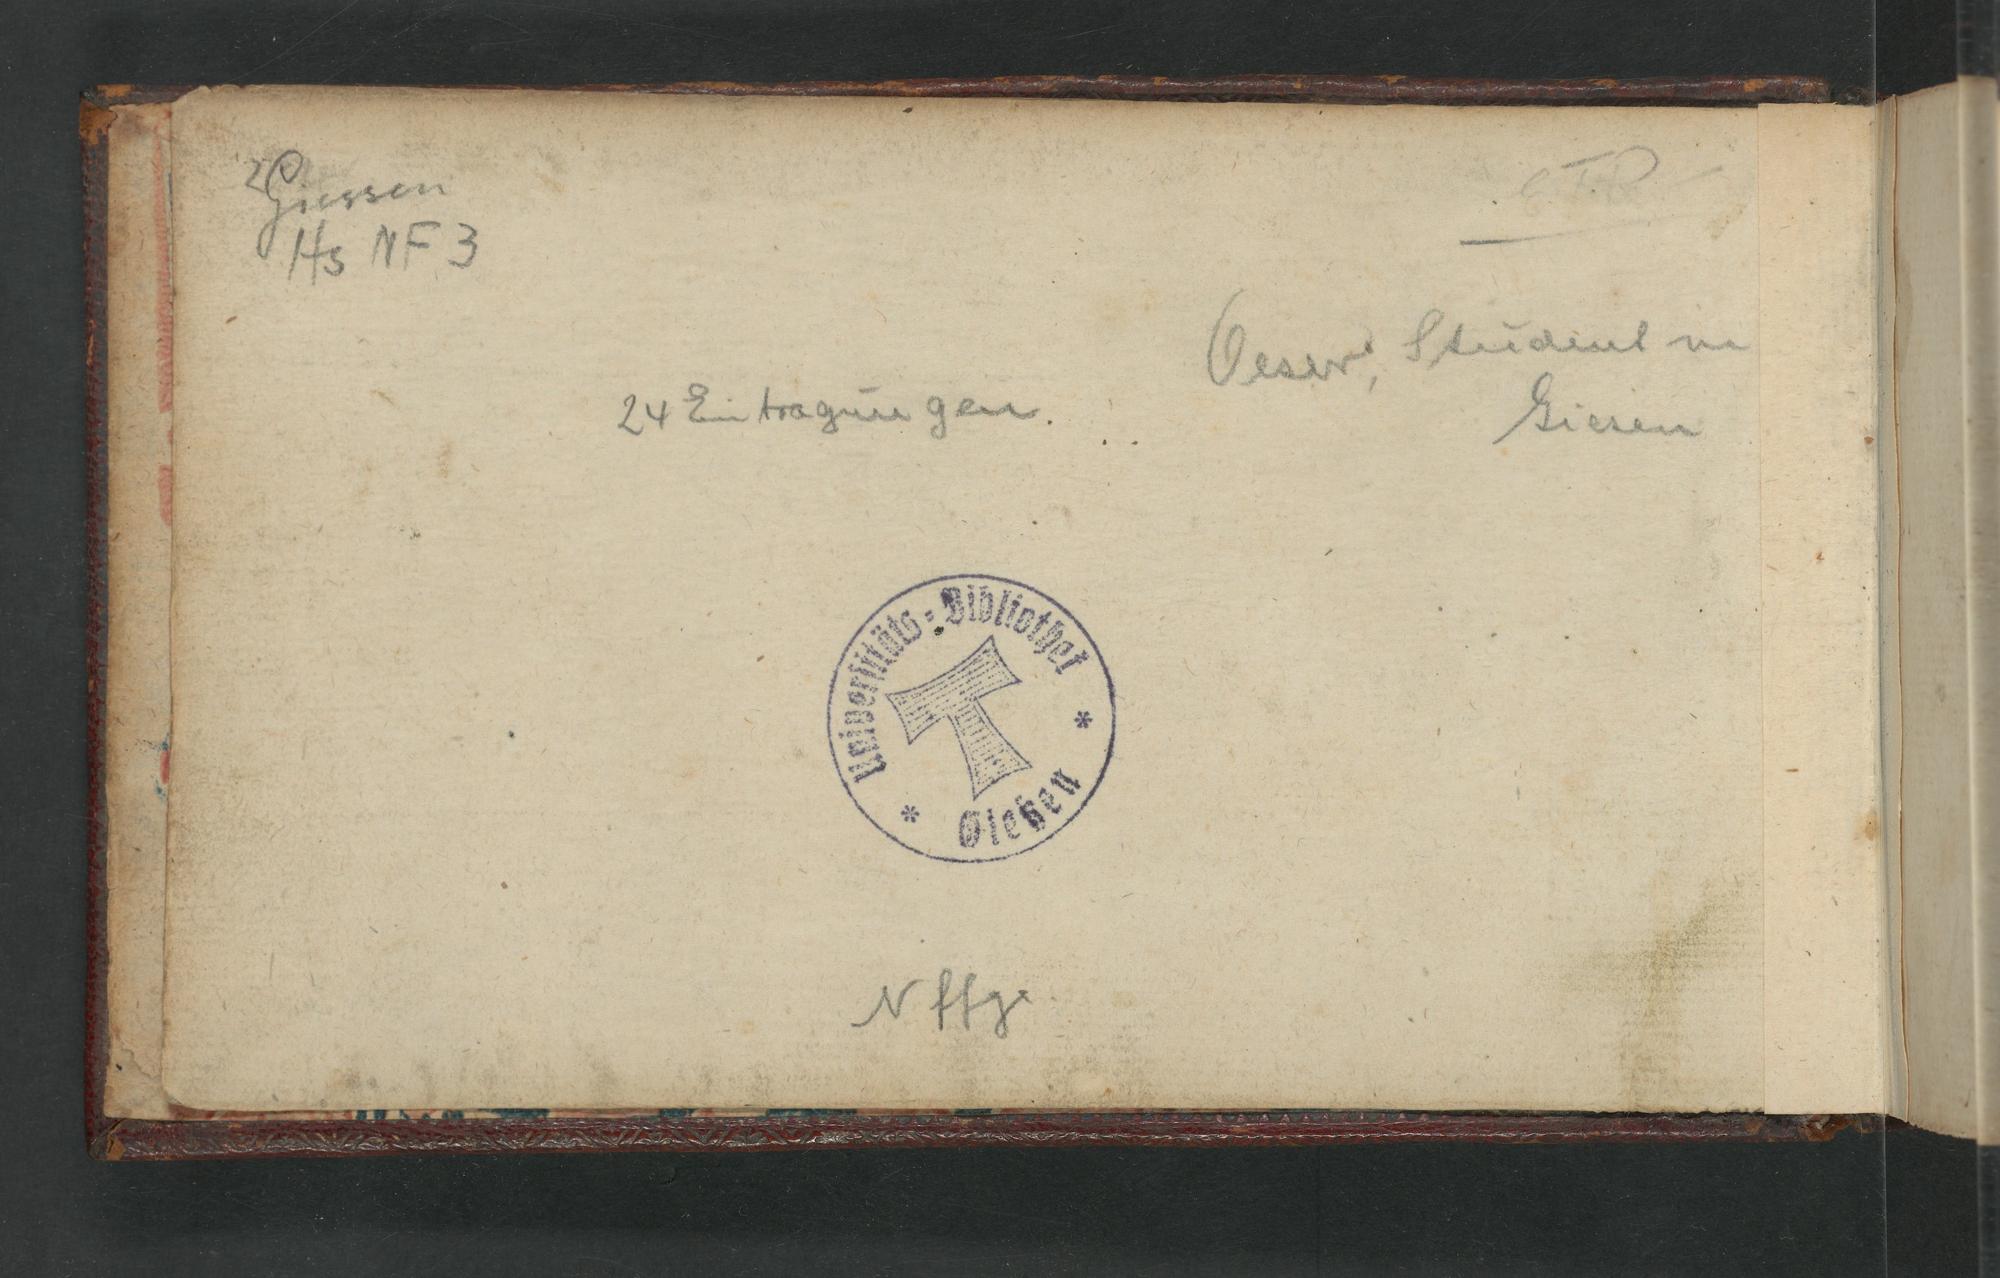 Giessen
Hs NF 3
Oeser, Student in
Giesen
24 Eintragungen.
Universitäts-Bibliothek
* Gießen *